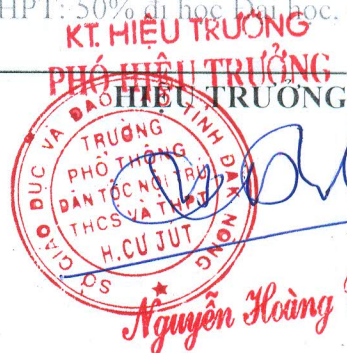 HPT: 50% đi học Đại học,
KT. HIỆU TRƯỞNG
PHÓ HIỆU TRƯỞNG
HIỆU TRƯỞNG
SỞ GIÁO DỤC VÀ ĐÀO TẠO TỈNH ĐẮK NÔNG
TRƯỜNG
PHỔ THÔNG
DÂN TỘC NỘI TRÚ
THCS VÀ THPT
H.CƯ JÚT
Nguyễn Hoàng